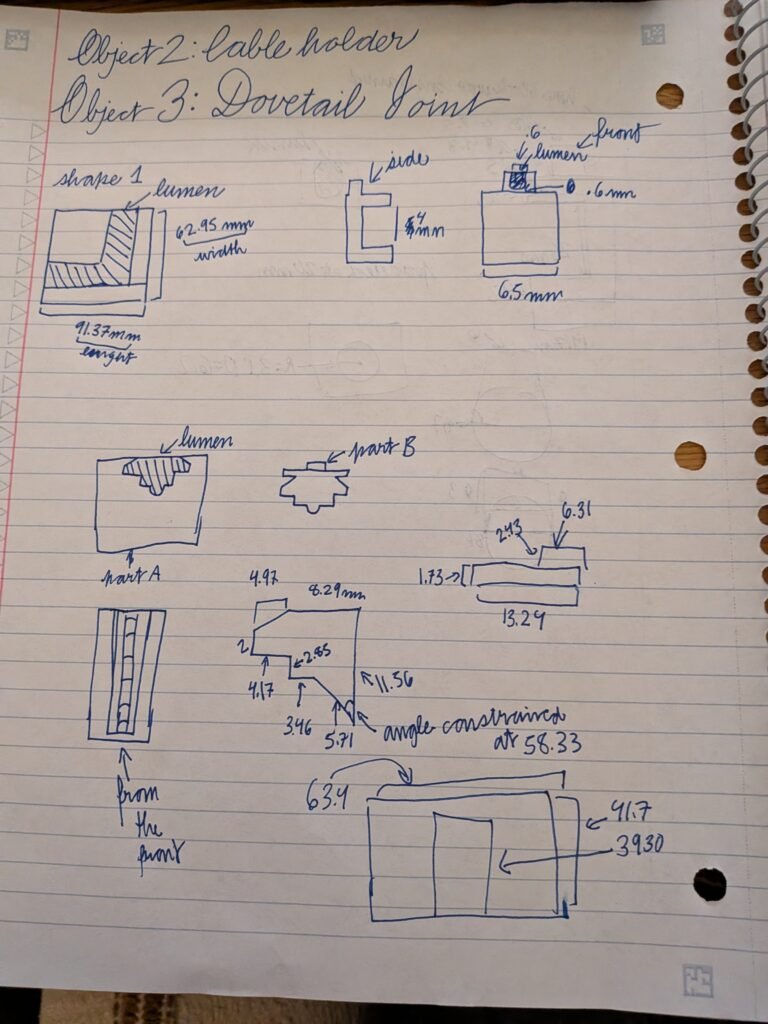 Object 2: Cable holder
Object 3: Dovetail Joint
shape 1
lumen
62.95 mm
width
91.37mm
side
4
mm
.6
lumen
front
.6mm
6.5mm
lumen
part A
part B
6.31
2.43
1.73
13.24
4.97
8.29mm
2
2.85
4.17
3.46
5.71
11.56
angle constrained
at 58.33
from
the
front
63.4
41.7
3930